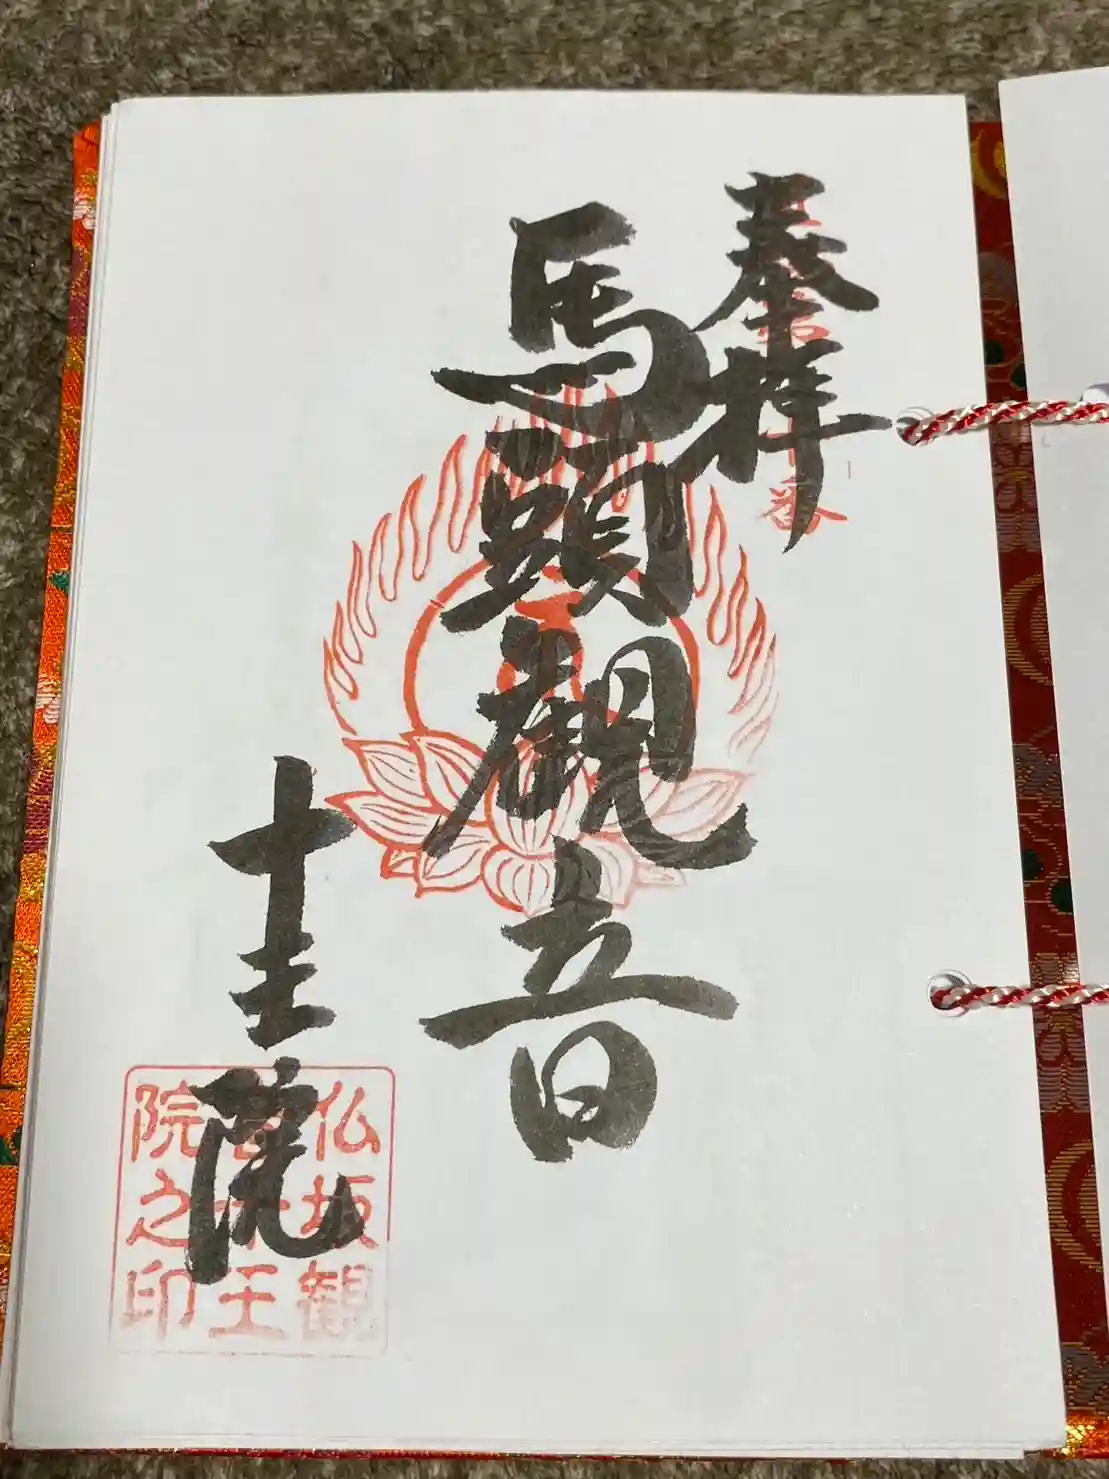 奉拝
番
馬頭観音
十王院
仏坂観
音十王
院之印